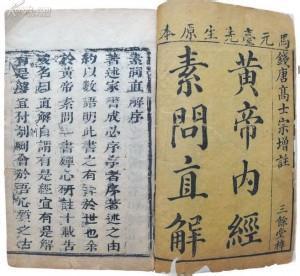 馬元臺先生原本
錢唐高士宗增註
黃帝內經
素問直解
三餘堂梓
素問直解序
著述家書成必序序者序著述之由
約以數語明此書之有裨於世也余
於黃帝素問一書殫心研註十載告
成名曰直解自謂有是經宜有是解
有是解宜付剞劂會於